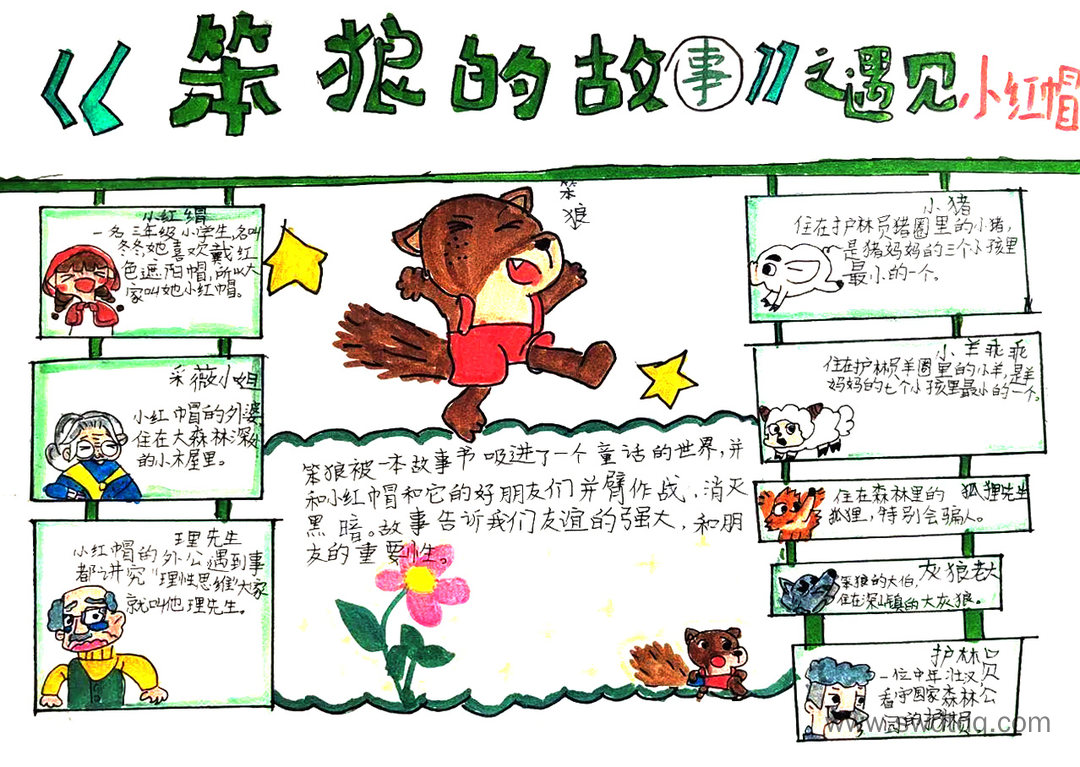 《笨狼的故事》之遇见小红帽
小红帽
一名三年级小学生,名叫
冬冬她喜欢戴红
色遮阳帽,所以大
家叫她小红帽。
采薇小姐
小红帽的外婆
住在大森林深处
的小木屋里。
理先生
小红帽的外公遇到事
都讲究“理性思维”大家
就叫他理先生。
笨
狼
笨狼被一本故事书吸进了一个童话的世界,并
和小红帽和它的好朋友们并臂作战,消灭
黑暗。故事告诉我们友谊的强大,和朋
友的重要性。
小猪
住在护林员猪圈里的小猪,
是猪妈妈的三个小孩里
最小的一个。
小羊乖乖
住在护林员羊圈里的小羊,是羊
妈妈的七个小孩里最小的一个。
狐狸先生
住在森林里的
狐狸,特别会骗人。
灰狼老大
笨狼的大伯
住在深山镇的大灰狼。
护林员
一位中年壮汉
看守国家森林公
园的护林员